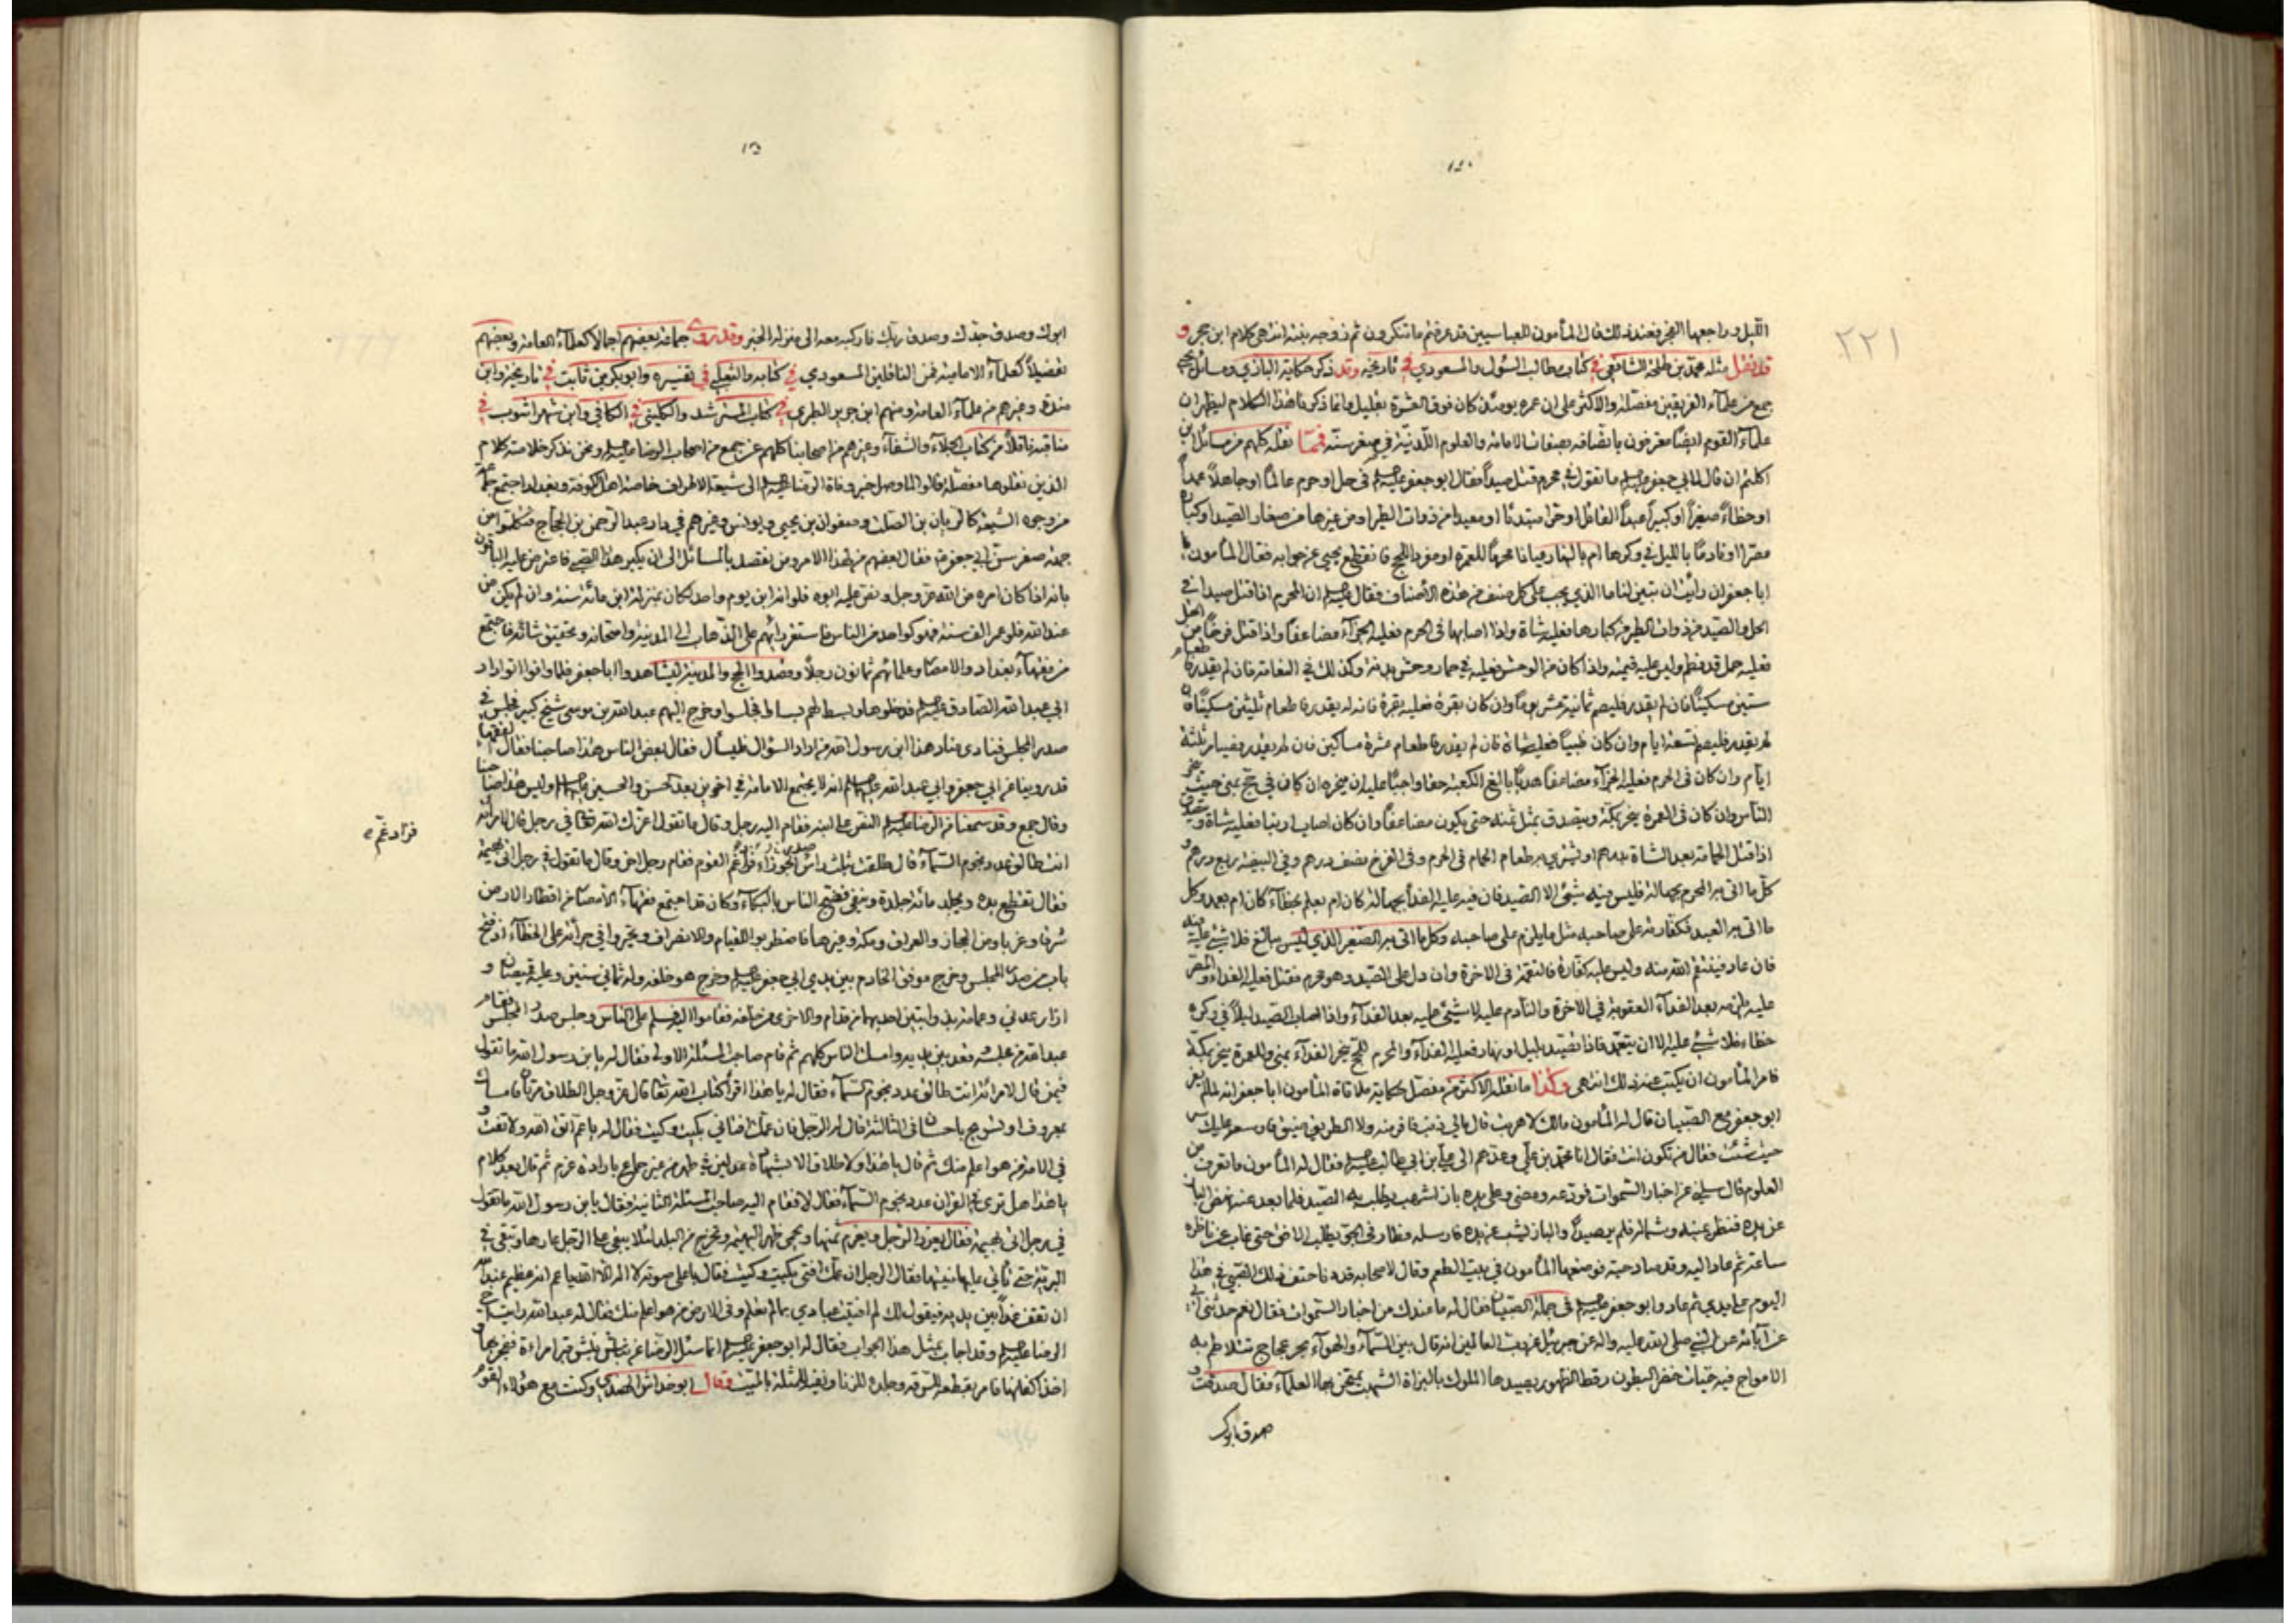 ٢٢١
الليل وراجعها الفجر فعند ذلك قال المأمون للعباسيين قد عرفتم ما تنكرون ثم زوجه بنته انتهى كلام ابن حجر و
قد نقل مثله محمد بن طلحة الشافعي في كتاب مطالب السئول والمسعودي في تاريخه وقد ذكر حكاية البازي ومسائل يحيى
جمع من علماء الفريقين مفصلة والاكثر على ان عمره يومئذ كان فوق العشرة بقليل وانما ذكرنا هذا الكلام ليظهر ان
علماء القوم ايضاً معترفون باتصافه بصفات الامامة والعلوم اللدنية في صغر سنه فمما نقله كلهم من مسائل ابن
اكثم ان قال لابي جعفر ما تقول في محرم قتل صيداً فقال ابو جعفر في حل او حرم عالماً او جاهلاً عمداً
او خطاءً صغيراً او كبيراً عبداً القاتل او حراً مبتدئاً او معيداً من ذوات الطير او من غيرها من صغار الصيد او كباره
مصراً او نادماً بالليل في وكرها ام بالنهار عياناً محرماً للعمرة او مفرداً للحج فانقطع يحيى عن جوابه فقال المأمون يا
ابا جعفر ان رأيت ان تبين لنا ما الذي يجب على كل صنف من هذه الاصناف فقال ان المحرم اذا قتل صيداً في
الحل والصيد من ذوات الطير من كبارها فعليه شاة واذا اصابها في الحرم فعليه الجزاء مضاعفاً واذا قتل فرخاً من الحل
فعليه حمل قد فطم وليس عليه قيمته واذا كان من الوحش فعليه في حمار وحش بدنة وكذلك في النعامة فان لم يقدر فاطعام
ستين مسكيناً فان لم يقدر فليصم ثمانية عشر يوماً وان كان بقرة فعليه بقرة فانه لم يقدر فاطعام ثلثين مسكيناً فان
لم يقدر فليصم تسعة ايام وان كان ظبياً فعليه شاة فان لم يقدر فاطعام عشرة مساكين فان لم يقدر فصيام ثلثة
ايام وان كان في الحرم فعليه الجزاء مضاعفاً هدياً بالغ الكعبة حقا واجبا عليه ان ينحره ان كان في حج بمنى حيث ينحر
الناس وان كان في العمرة ينحر بمكة ويتصدق بمثل ثمنه حتى يكون مضاعفاً وان كان اصاب ارنبا فعليه شاة و
اذا قتل الحمامة بعد الشاة بدرهم او يشتري به طعام الحمام في الحرم وفي الفرخ نصف درهم وفي البيضة ربع درهم و
كل ما اتى به المحرم بجهالة فليس فيه شيئ الا الصيد فان فيه عليه الفداء بجهالة كان ام بعلم بخطاء كان ام بعمد وكل
ما اتى به العبد فكفارته على صاحبه مثل ما يلزم على صاحبه وكل ما اتى به الصغير الذي ليس ببالغ فلا شئ عليه فيه
فان عاد فينتقم الله منه وليس عليه كفارة فالنقمة في الاخرة وان دل على الصيد وهو محرم فقتل فعليه الفداء والمصر
عليه يلزمه بعد الفداء العقوبة في الاخرة والنادم عليه لا شيئ عليه بعد الفداء واذا اصاب الصيد ليلاً في وكره
خطاء فلا شئ عليه الا ان يتعمد فاذا تصيد بليل او نهار فعليه الفداء والمحرم للحج ينحر الفداء بمنى وللعمرة ينحر بمكة
فامر المأمون ان يكتب عنه ذلك انتهى وكذا ما نقله الاكثر من مفصل حكاية ملاقاة المأمون ابا جعفر انه لما لم يفر
ابو جعفر مع الصبيان قال له المأمون مالك لا هربت قال مالي ذنب فافر منه ولا الطريق ضيق فاوسعه عليك سر
حيث شئت فقال من تكون انت فقال انا محمد بن علي وعدهم الى علي بن ابي طالب فقال له المأمون ما تعرف من
العلوم قال سلني عن اخبار السموات فودعه ومضى وعلى يده باز اشهب يطلب به الصيد فلما بعد عنه نهض الباز
عن يده فنظر يمينه وشماله فلم ير صيداً والباز يشب عن يده فارسله وطار في الجو يطلب الافق حتى غاب عن ناظره
ساعة ثم عاد اليه وقد صاد حية فوضعها المأمون في بيت الطعم وقال لاصحابه قد دنا حتف ذلك الصبي في هذا
اليوم على يدي ثم عاد وابو جعفر في جملة الصبيان فقال له ما عندك من اخبار السموات فقال نعم حدثني ابي
عن آبائه عن النبي صلى الله عليه واله عن جبرئيل عن رب العالمين انه قال بين السماء والهواء بحر عجاج تتلاطم به
الامواج فيه حيات خضر البطون رقط الظهور يصيدها الملوك بالبزاة الشهب يمتحن بها العلماء فقال صدقت و
صدق ابوك
ابوك وصدق جدك وصدق ربك فاركبه معه الى منزله الخبر وقد روى جماعة بعضهم اجمالا كعلماء العامة وبعضهم
تفصيلاً كعلماء الامامية فمن الناقلين المسعودي في كتابه والثعلبي في تفسيره وابو بكر بن ثابت في تاريخه وابن
مندة وغيرهم من علماء العامة ومنهم ابن جرير الطبري في كتاب المسترشد والكليني في الكافي وابن شهر اشوب في
مناقبه ناقلاً من كتاب الجلاء والشفاء وغيرهم من اصحابنا كلهم عن جمع من اصحاب الرضا ونحن نذكر خلاصة كلام
الذين نقلوها مفصلة قالوا لما وصل خبر وفاة الرضا الى شيعة الاطراف خاصة اهل الكوفة وبغداد اجتمع جمع
من وجوه الشيعة كالريان بن الصلت وصفوان بن يحيى ويونس وغيرهم في دار عبد الرحمن بن الحجاج فتكلموا من
جهة صغر سن ابي جعفر فقال بعضهم من لهذا الامر ومن نقصد بالمسائل الى ان يكبر هذا الصبي فاعترض عليه الباقون
بانه اذا كان امره من الله عز وجل ونص عليه ابوه فلو انه ابن يوم واحد لكان بمنزلة ابن مائة سنة وان لم يكن من
عند الله فلو عمر الف سنة فهو كواحد من الناس فاستقر رأيهم على الذهاب الى المدينة وامتحانه وتحقيق شانه فاجتمع
من فقهاء بغداد والامصار وعلمائهم ثمانون رجلاً وقصدوا الحج والمدينة ليشاهدوا ابا جعفر فلما وافوا اتوا دار
ابي عبد الله الصادق فدخلوها وبسط لهم بساط فجلسوا وخرج اليهم عبد الله بن موسى شيخ كبير فجلس في
صدر المجلس فنادى مناد هذا ابن رسول الله من اراد السؤال فليسأل فقال بعض الناس هذا صاحبنا فقال الفقهاء
قد روينا عن ابي جعفر وابي عبد الله انه لا يجتمع الامامة في اخوين بعد الحسن والحسين وليس هذا صاحبنا
وقال جمع وقد سمعنا من الرضا النص على ابنه فقام اليه رجل وقال ما تقول اعزك الله في رجل قال لامرأته
انت طالق عدد نجوم السماء قال طلقت بثلث رأس الجوزاء فزاد غم القوم فقام رجل اخر وقال ما تقول في رجل اتى بهيمة
فقال تقطع يده ويجلد مائة جلدة وينفى فضج الناس بالبكاء وكان قد اجتمع فقهاء الامصار من اقطار الارض
شرقا وغربا ومن الحجاز والعراق ومكة وغيرها فاضطربوا للقيام والانصراف وتحيروا في جرأته على الخطاء اذ فتح
باب من صدر المجلس وخرج موفق الخادم بين يدي ابي جعفر وخرج هو خلفه وله ثماني سنين وعليه قميصان و
ازار عدني وعمامة بذوابتين احديهما من قدام والاخرى من خلفه فقاموا اليه فسلم على الناس وجلس صدر المجلس فقام
عبد الله من مجلسه فقعد بين يديه وامسك الناس كلهم ثم قام صاحب المسئلة الاولى فقال له يا بن رسول الله ما تقول
فيمن قال لامرأته انت طالق عدد نجوم السماء فقال له يا هذا اقرأ كتاب الله تعالى قال عز وجل الطلاق مرتان فامساك
بمعروف او تسريح باحسان في الثالثة قال له الرجل فان عمك افتاني بكيت وكيت فقال له يا عم اتق الله ولا تفت و
في الامة من هو اعلم منك ثم قال يا هذا ولا طلاق الا بشهادة عدلين في طهر من غير جماع بارادة عزم ثم قال بعد كلام
يا هذا هل ترى في القران عدد نجوم السماء فقال لا فقام اليه صاحب المسئلة الثانية فقال يا بن رسول الله ما تقول
في رجل اتى بهيمة فقال يعزر الرجل ويغرم ثمنها ويحمى ظهر البهيمة وتخرج من البلد لئلا يبقى على الرجل عارها وتبقى في
البرية حتى تأتي عليها منيتها فقال الرجل ان عمك افتى بكيت وكيت فقال باعلى صوته لا اله الا الله يا عم انه عظيم عند الله
ان تقف غداً بين يديه فيقول لك لم افتيت عبادي بما لم تعلم وفي الارض من هو اعلم منك فقال له عبد الله رايت اخي
الرضا وقد اجاب بمثل هذا الجواب فقال له ابو جعفر انما سئل الرضا عن نباش نبش قبر امراءة ففجر بها و
اخذ اكفانها فامر بقطعه للسرقة وجلده للزنا ونفيه للمثلة بالميت فقال ابو خداش المهدي وكنت مع هؤلاء القوم
فزاد غم